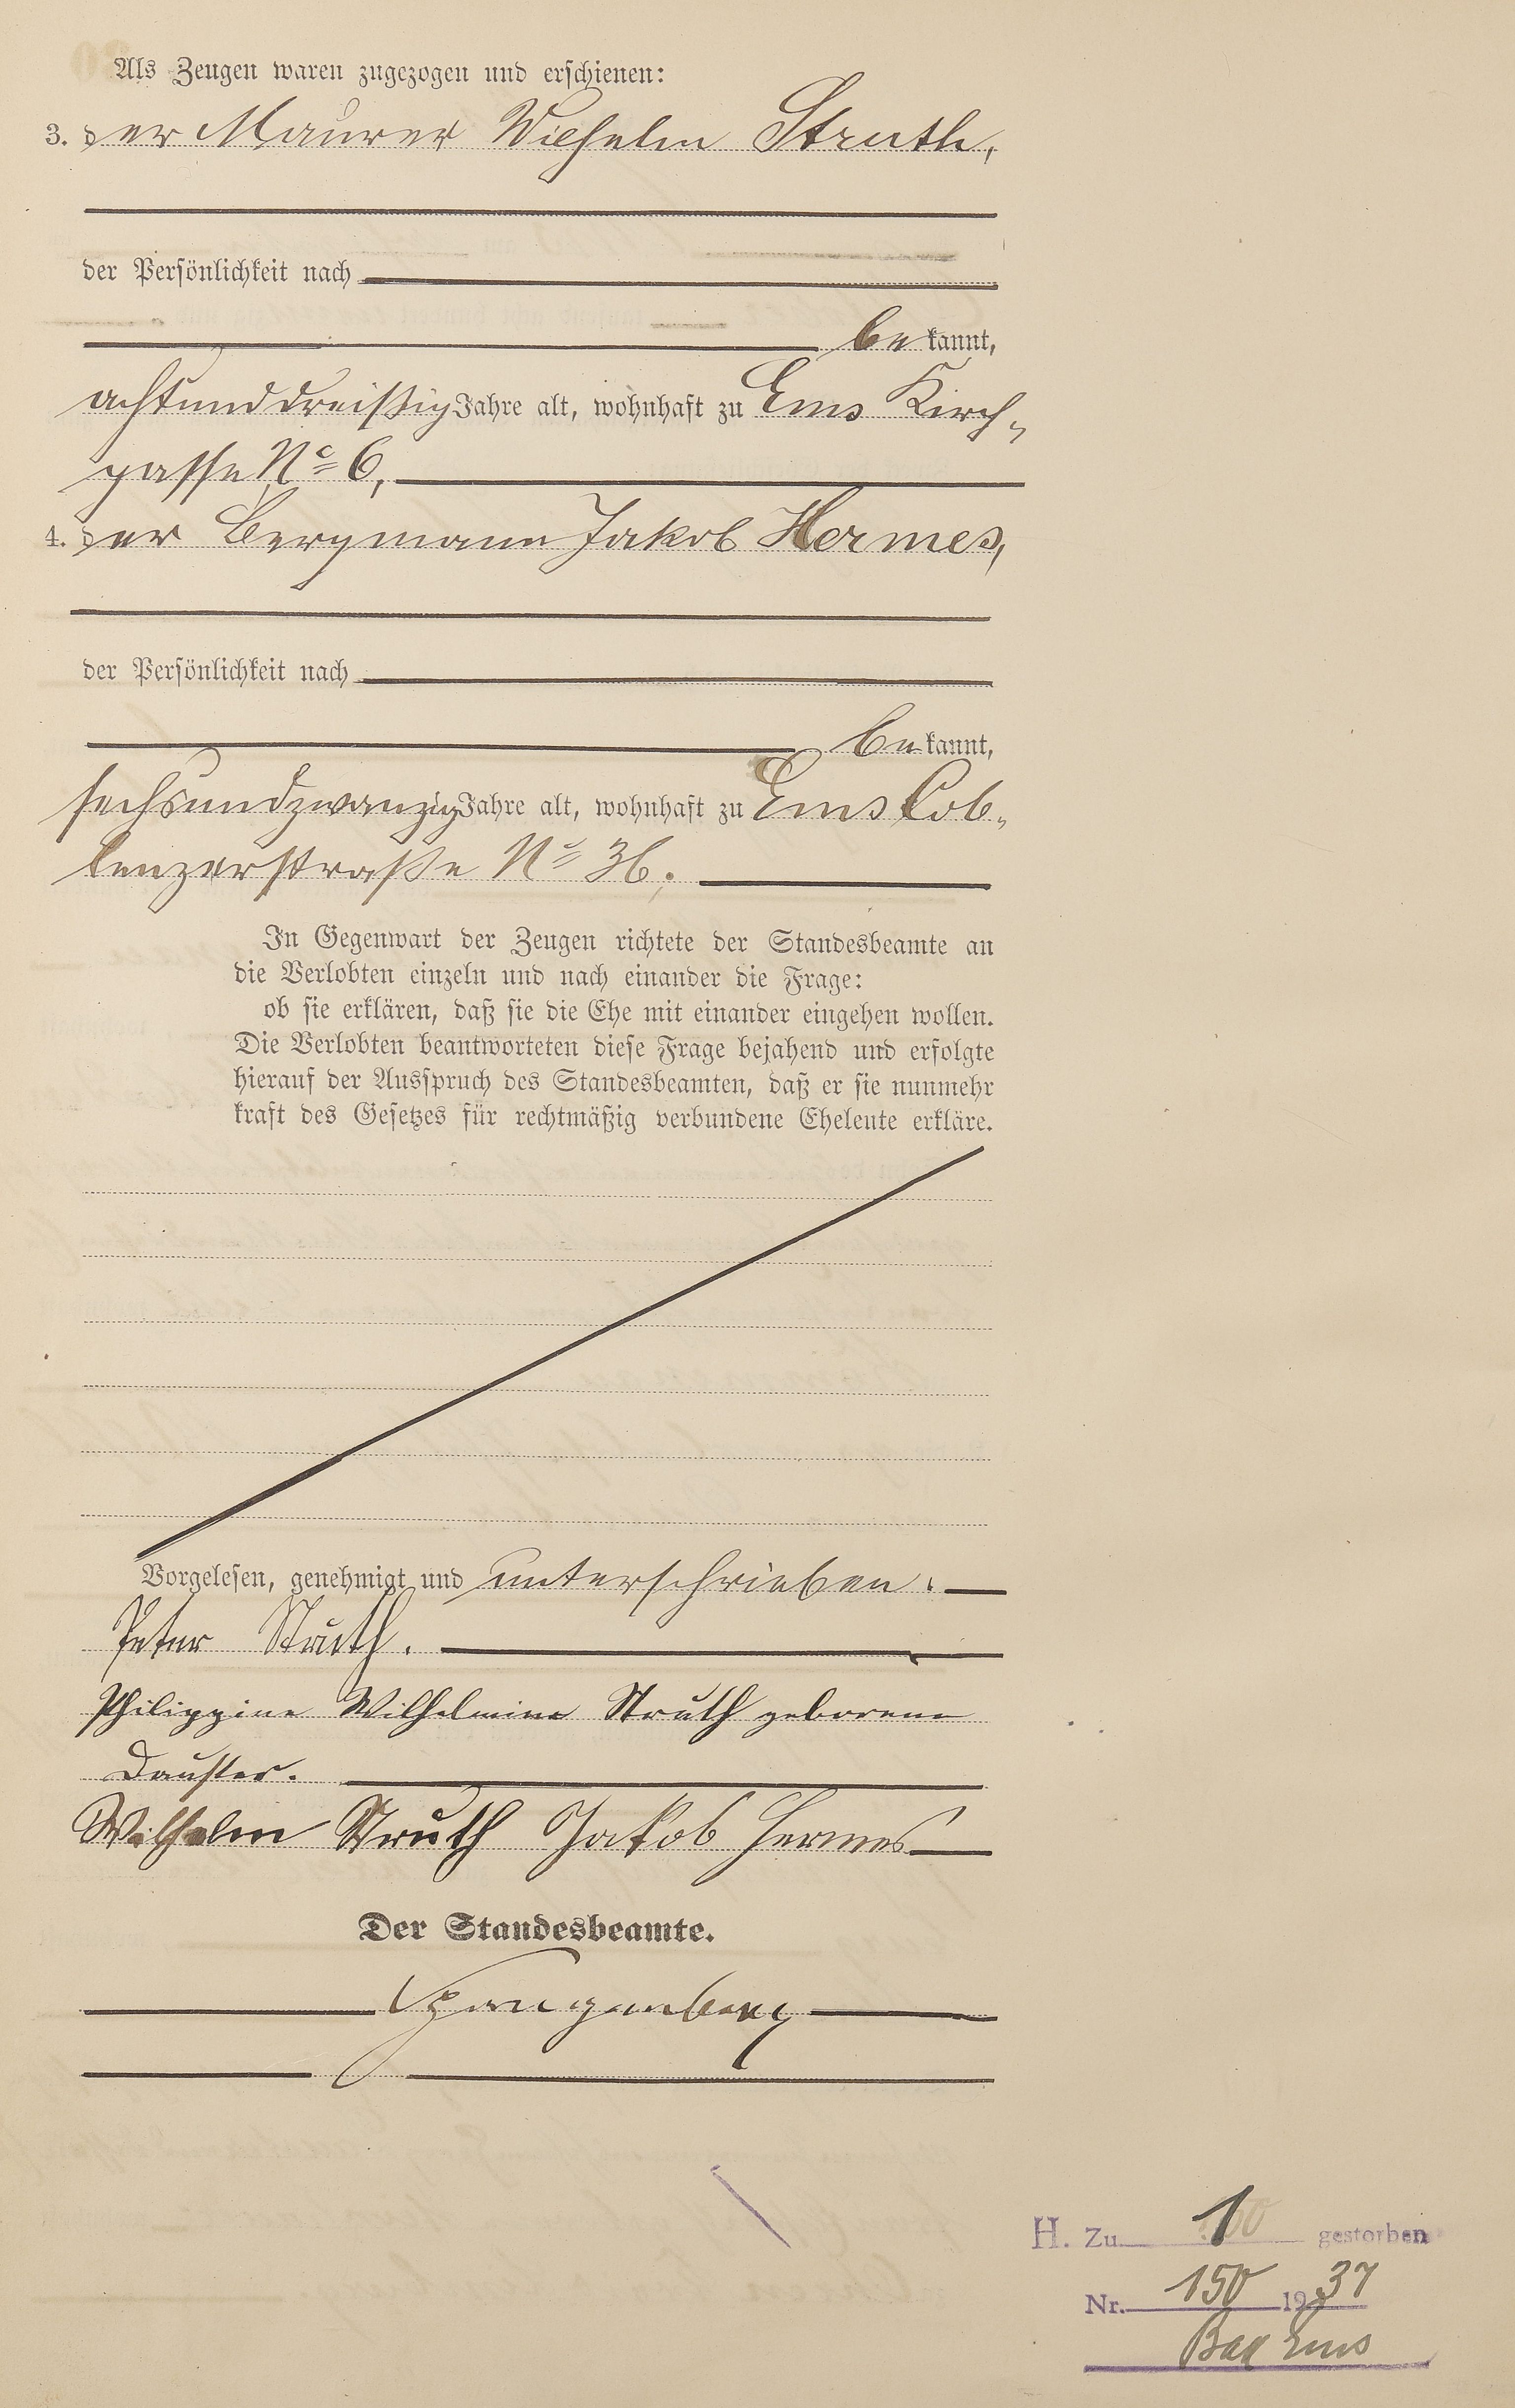 Als Zeugen waren zugezogen und erschienen:
3. der Maurer Wilhelm Struth,
der Persönlichkeit nach
bekannt,
achtunddreißig Jahre alt, wohnhaft zu Ems Kirch-
gasse No 6,
4. der Bergmann Jakob Hermes,
der Persönlichkeit nach
bekannt,
sechsundzwanzig Jahre alt, wohnhaft zu Ems Cob-
lenzerstraße No 36.
In Gegenwart der Zeugen richtete der Standesbeamte an
die Verlobten einzeln und nach einander die Frage:
ob sie erklären, daß sie die Ehe mit einander eingehen wollen.
Die Verlobten beantworteten diese Frage bejahend und erfolgte
hierauf der Ausspruch des Standesbeamten, daß er sie nunmehr
kraft des Gesetzes für rechtmäßig verbundene Eheleute erkläre.
Vorgelesen, genehmigt und unterschrieben.
Peter Struth.
Philippine Wilhelmine Struth geborene
Dauster.
Wilhelm Struth Jakob Hermes
Der Standesbeamte.
Spangenberg
H. Zu 1 gestorben
Nr. 150 1937
Bad Ems